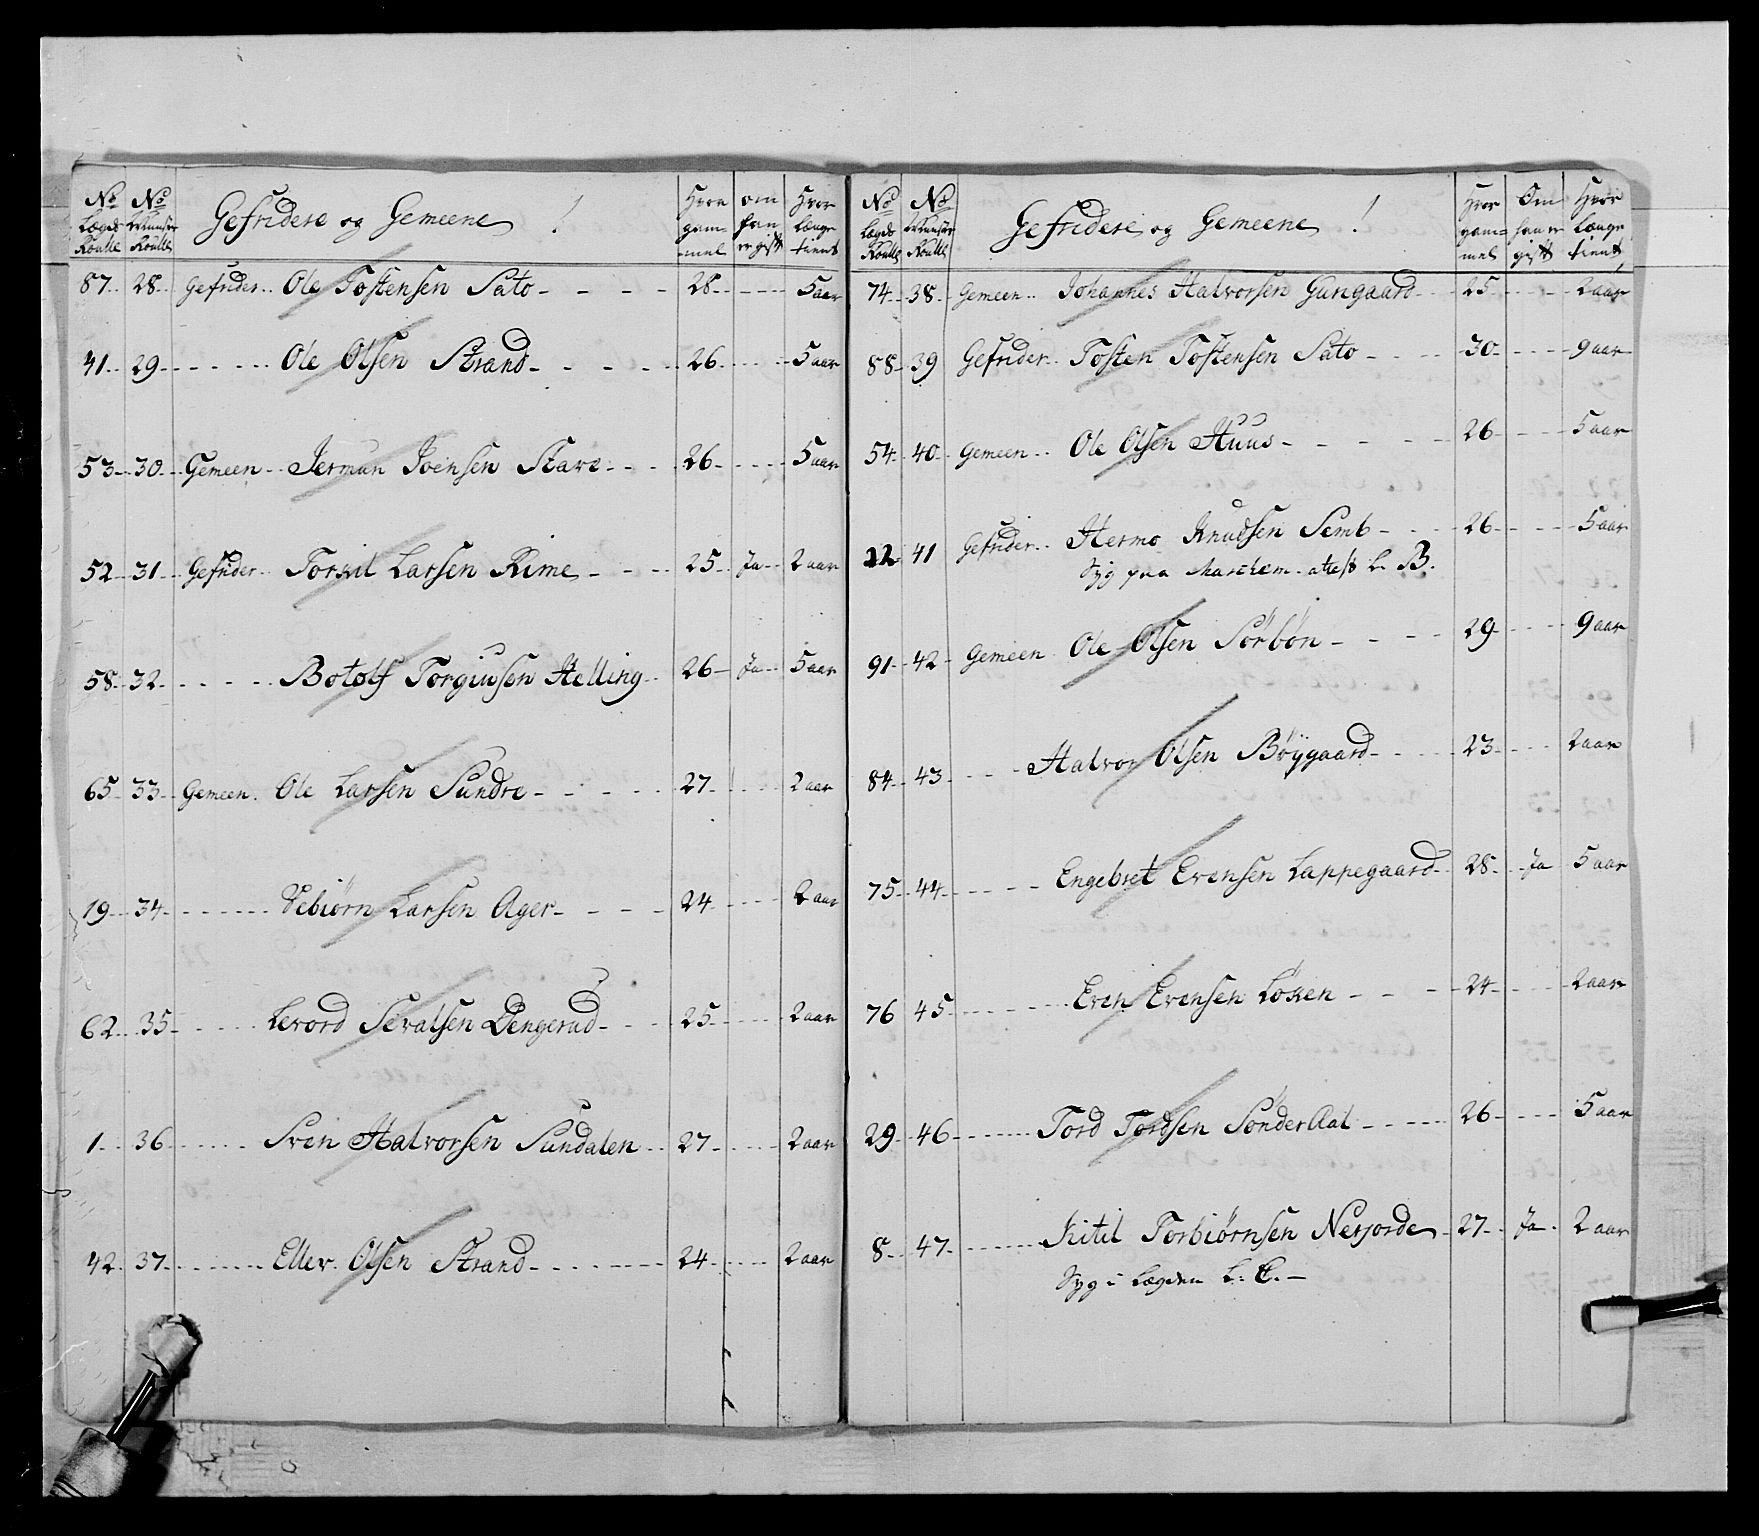 No No Gefridere og Gemeene ! Hvor om Hvor
Lægds Munster gam- han længe
Roulle Roulle mel er gift tient
87 28 Gefrider Ole Tostensen Sato 28 5 aar
41 29 Ole Olsen Strand 26 5 aar
53 30 Gemeen Jermun Joensen Stave 26 5 aar
52 31 Gefrider Torkil Larsen Rime 25 Ja 2 aar
58 32 Botolf Torgiusen Helling 26 Ja 5 aar
65 33 Gemeen Ole Larsen Sundre 27 2 aar
19 34 Vebiörn Larsen Ager 24 2 aar
62 35 Levord Sevatsen Dengerud 25 2 aar
1 36 Sven Halvorsen Sundalen 27 2 aar
42 37 Ellev Olsen Strand 24 2 aar
No No Gefridere og Gemeene ! Hvor Om Hvor
Lægds Munster gam= han er Længe
Roulle Roulle mel gift tient
74 38 Gemeen Johannes Halvorsen Gungaard 25 2 aar
88 39 Gefrider Tosten Tostensen Sato 30 9 aar
54 40 Gemeen Ole Olsen Huus 26 5 aar
22 41 Gefrider Hermo Knudsen Semb 26 5 aar
Syg paa Marchem attest L. B.
91 42 Gemeen Ole Olsen Sörbön 29 9 aar
84 43 Halvor Olsen Böygaard 23 2 aar
75 44 Engebret Evensen Lappegaard 28 Ja 5 aar
76 45 Even Evensen Löken 24 2 aar
29 46 Tord Tordsen Sönder Aal 26 5 aar
8 47 Kitil Torbiörnsen Nerjorde 27 Ja 2 aar
Syg i Lægden L: C.